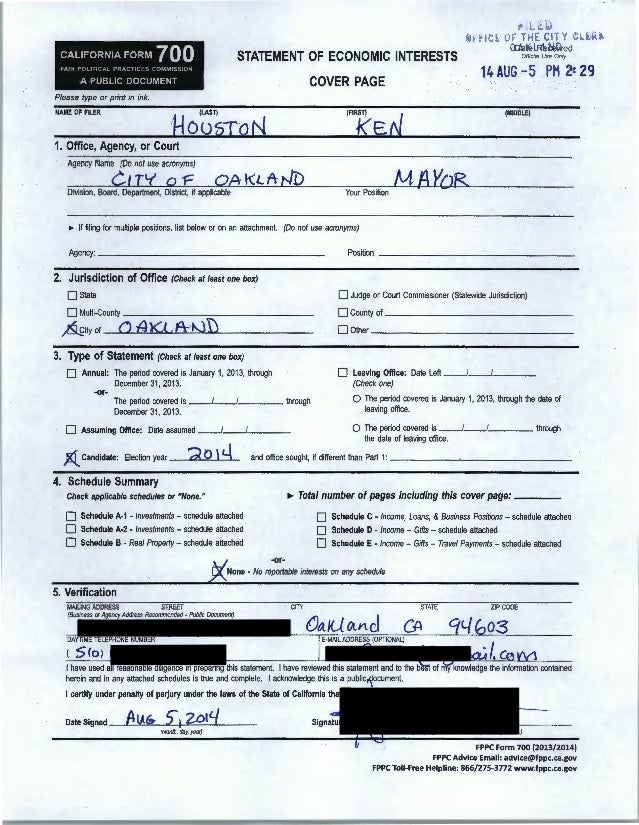 FILED
OFFICE OF THE CITY CLERK
OAKLAND
Official Use Only
14 AUG -5 PM 2:29
CALIFORNIA FORM 700
FAIR POLITICAL PRACTICES COMMISSION
A PUBLIC DOCUMENT
STATEMENT OF ECONOMIC INTERESTS
COVER PAGE
Please type or print in ink.
NAME OF FILER (LAST) (FIRST) (MIDDLE)
HOUSTON KEN
1. Office, Agency, or Court
Agency Name (Do not use acronyms)
CITY OF OAKLAND MAYOR
Division, Board, Department, District, if applicable Your Position
► If filing for multiple positions, list below or on an attachment. (Do not use acronyms)
Agency: Position:
2. Jurisdiction of Office (Check at least one box)
State Judge or Court Commissioner (Statewide Jurisdiction)
Multi-County County of
City of OAKLAND Other
3. Type of Statement (Check at least one box)
Annual: The period covered is January 1, 2013, through December 31, 2013.
Leaving Office: Date Left / /
(Check one)
-or-
The period covered is / / , through December 31, 2013.
The period covered is January 1, 2013, through the date of leaving office.
Assuming Office: Date assumed / /
The period covered is / / , through the date of leaving office.
Candidate: Election year 2014 and office sought, if different than Part 1:
4. Schedule Summary
Check applicable schedules or "None." ► Total number of pages including this cover page:
Schedule A-1 - Investments – schedule attached Schedule C - Income, Loans, & Business Positions – schedule attached
Schedule A-2 - Investments – schedule attached Schedule D - Income – Gifts – schedule attached
Schedule B - Real Property – schedule attached Schedule E - Income – Gifts – Travel Payments – schedule attached
-or-
None - No reportable interests on any schedule
5. Verification
MAILING ADDRESS STREET CITY STATE ZIP CODE
(Business or Agency Address Recommended - Public Document)
Oakland CA 94603
DAYTIME TELEPHONE NUMBER E-MAIL ADDRESS (OPTIONAL)
(510) ail.com
I have used all reasonable diligence in preparing this statement. I have reviewed this statement and to the best of my knowledge the information contained
herein and in any attached schedules is true and complete. I acknowledge this is a public document.
I certify under penalty of perjury under the laws of the State of California tha
Date Signed Aug 5, 2014 Signatu
(month, day, year)
FPPC Form 700 (2013/2014)
FPPC Advice Email: advice@fppc.ca.gov
FPPC Toll-Free Helpline: 866/275-3772 www.fppc.ca.gov